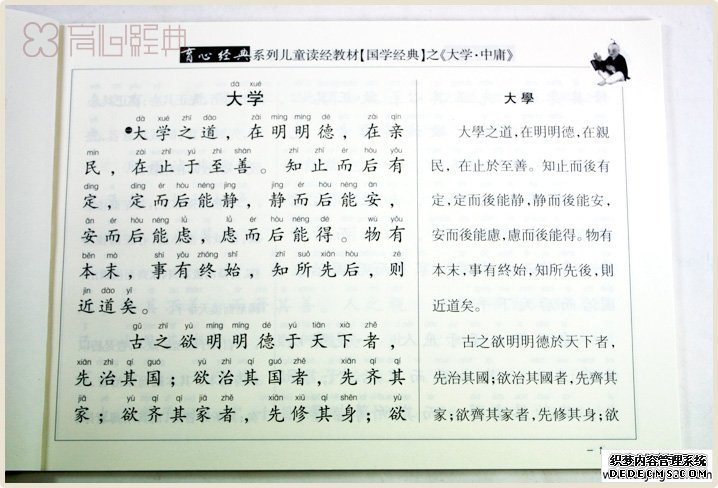 育心经典
育心经典 系列儿童读经教材【国学经典】之《大学·中庸》
dà xué
大学
dà xué zhī dào zài míng míng dé zài qīn
大学之道，在明明德，在亲
mín zài zhǐ yú zhì shàn zhī zhǐ ér hòu yǒu
民，在止于至善。知止而后有
dìng dìng ér hòu néng jìng jìng ér hòu néng ān
定，定而后能静，静而后能安，
ān ér hòu néng lǜ lǜ ér hòu néng dé wù yǒu
安而后能虑，虑而后能得。物有
běn mò shì yǒu zhōng shǐ zhī suǒ xiān hòu zé
本末，事有终始，知所先后，则
jìn dào yǐ
近道矣。
gǔ zhī yù míng míng dé yú tiān xià zhě
古之欲明明德于天下者，
xiān zhì qí guó yù zhì qí guó zhě xiān qí qí
先治其国；欲治其国者，先齐其
jiā yù qí qí jiā zhě xiān xiū qí shēn yù
家；欲齐其家者，先修其身；欲
大學
大學之道，在明明德，在親
民，在止於至善。知止而後有
定，定而後能静，静而後能安，
安而後能慮，慮而後能得。物有
本末，事有終始，知所先後，則
近道矣。
古之欲明明德於天下者，
先治其國；欲治其國者，先齊其
家；欲齊其家者，先修其身；欲
织梦内容管理系统
DEDECMS.COM